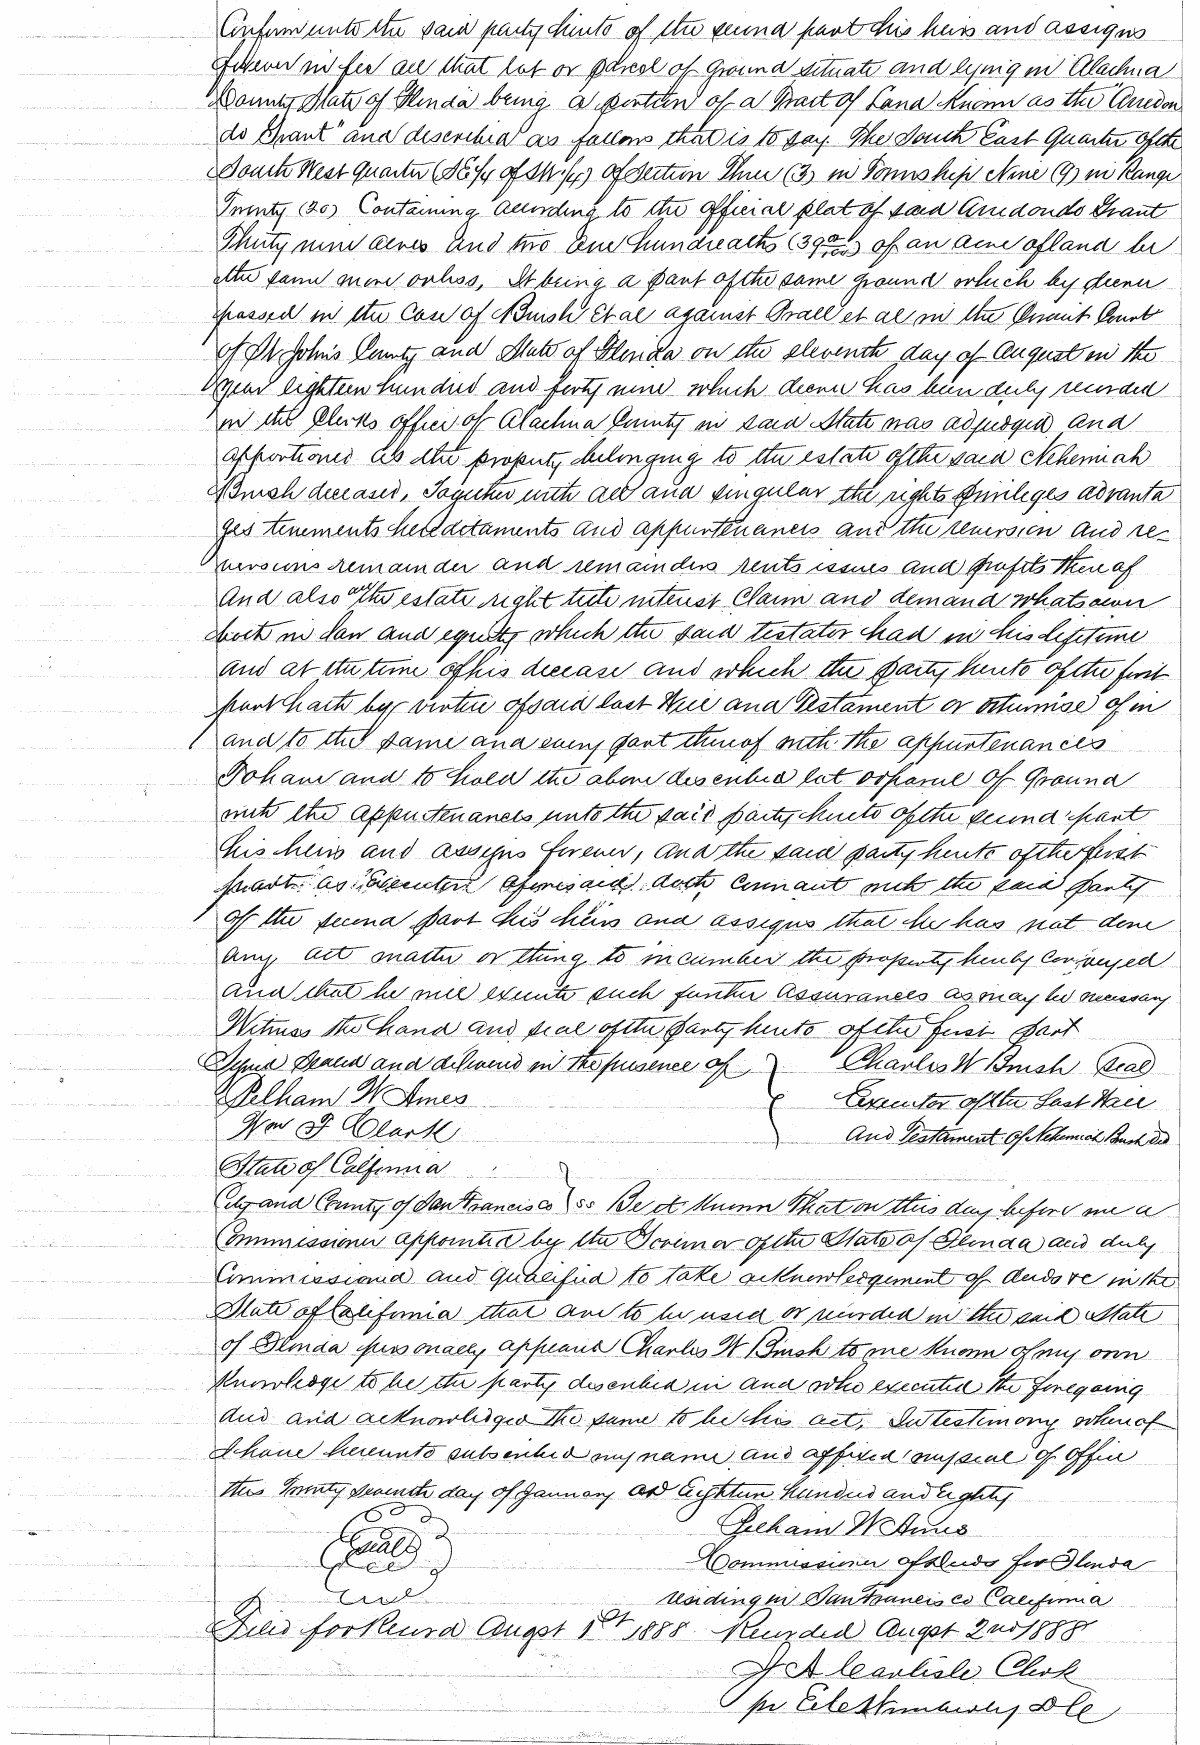 Confirm unto the said party hereto of the second part his heirs and assigns
forever in fee all that lot or parcel of ground situate and lying in Alachua
County State of Florida being a portion of a Tract of Land Known as the "Arredon
do Grant" and described as follows that is to say. The South East Quarter of the
South West quarter (SE¼ of SW¼) of Section Three (3) in Township Nine (9) in Range
Twenty (20) Containing according to the official plat of said Arredondo Grant
Thirty nine acres and two one hundredths (39 02/100) of an acre of land be
the same more or less, It being a part of the same ground which by decree
passed in the Case of Brush et al against Prall et al in the Circuit Court
of St Johns County and State of Florida on the eleventh day of August in the
year eighteen hundred and forty nine which decree has been duly recorded
in the Clerks office of Alachua County in said State was adjudged and
apportioned as the property belonging to the estate of the said Nehemiah
Brush deceased, Together with all and singular the rights privileges advanta
ges tenements hereditaments and appurtenances and the reversion and re-
versions remainder and remainders rents issues and profits thereof
And also all the estate right title interest Claim and demand whatsoever
both in law and equity which the said testator had in his lifetime
and at the time of his decease and which the party hereto of the first
part hath by virtue of said last Will and Testament or otherwise of in
and to the same and every part thereof with the appurtenances
To have and to hold the above described lot or parcel of ground
with the appurtenances unto the said party hereto of the second part
his heirs and assigns forever, and the said party hereto of the first
part as Executor aforesaid doth covenant with the said party
of the second part his heirs and assigns that he has not done
any act matter or thing to incumber the property hereby conveyed
and that he will execute such further assurances as may be necessary
Witness the hand and seal of the party hereto of the first part
Signed Sealed and delivered in the presence of } Charles W Brush (seal)
Pelham W Ames { Executor of the Last Will
Wm F Clark And Testament of Nehemiah Brush Decd
State of California }
City and County of San Francisco } ss Be it Known That on this day before me a
Commissioner appointed by the Governor of the State of Florida and duly
Commissioned and qualified to take acknowledgement of deeds &c in the
State of California that are to be used or recorded in the said State
of Florida personally appeared Charles W Brush to me Known of my own
Knowledge to be the party described in and who executed the foregoing
deed and acknowledged the same to be his act. In testimony whereof
I have hereunto subscribed my name and affixed my seal of office
this Twenty seventh day of January AD Eighteen hundred and Eighty
Pelham W Ames
(seal) Commissioner of deeds for Florida
residing in San Francisco California
Filed for Record Augst 1st 1888 Recorded Augst 2nd 1888
J A Carlisle Clerk
pr Wimberly D C